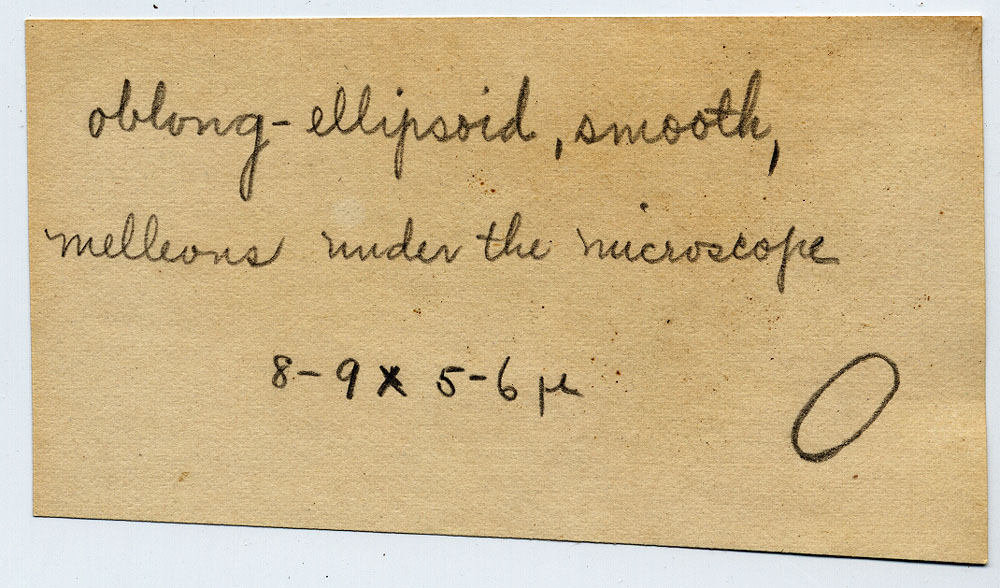 oblong-ellipsoid, smooth,
melleous under the microscope
8-9 x 5-6 µ